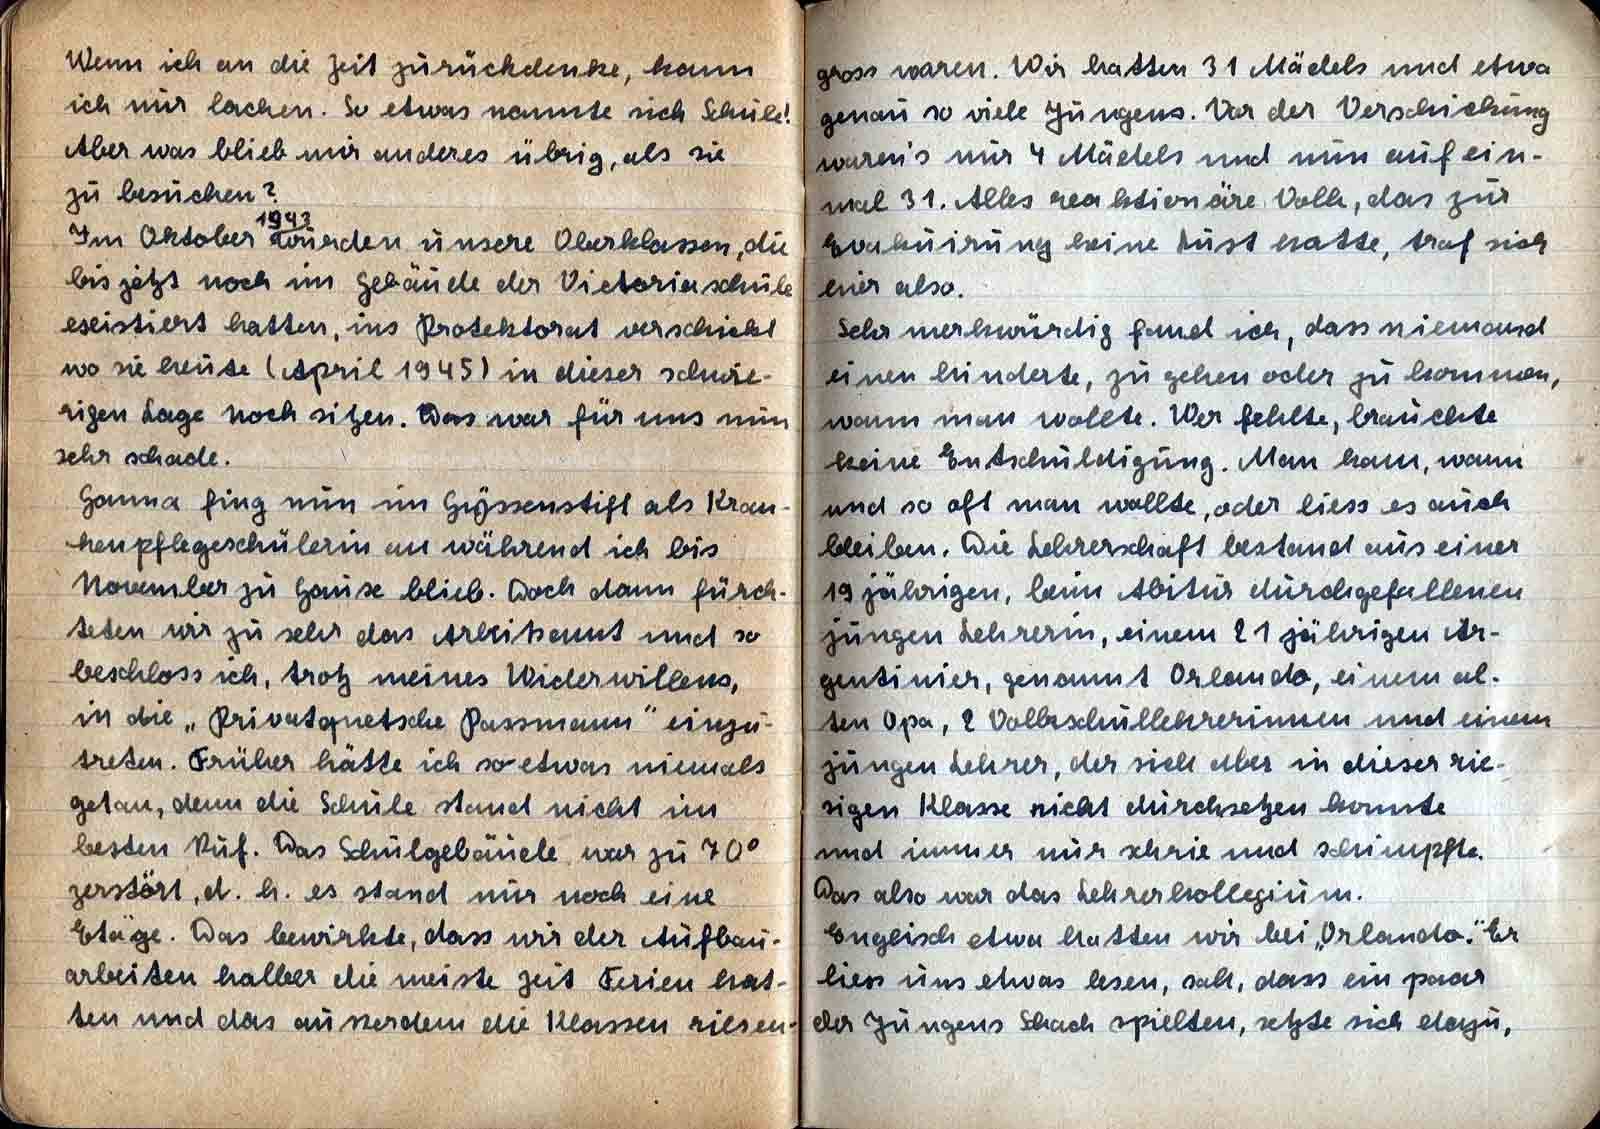 Wenn ich an die Zeit zurückdenke, kann
ich nur lachen. So etwas nannte sich Schule!
Aber was blieb mir anderes übrig, als sie
zu besuchen?
1943
Im Oktober wurden unsere Oberklassen, die
bis jetzt noch im Gebäude der Victoriaschule
existiert hatten, ins Protektorat verschickt
wo sie heute (April 1945) in dieser schwie-
rigen Lage noch sitzen. Das war für uns nun
sehr schade.
Hanna fing nun im Hyssenstift als Kran-
kenpflegeschülerin an während ich bis
November zu Hause blieb. Doch dann fürch-
teten wir zu sehr das Arbeitsamt und so
beschloss ich, trotz meines Widerwillens,
in die „Privatquetsche Passmann" einzu-
treten. Früher hätte ich so etwas niemals
getan, denn die Schule stand nicht im
besten Ruf. Das Schulgebäude war zu 70°
zerstört, d. h. es stand nur noch eine
Etäge. Das bewirkte, dass wir der Aufbau-
arbeiten halber die meiste Zeit Ferien hat-
ten und das ausserdem die Klassen riesen-
gross waren. Wir hatten 31 Mädels und etwa
genau so viele Jungens. Vor der Verschickung
waren's nur 4 Mädels und nun auf ein-
mal 31. Alles reaktionäre Volk, das zur
Evakuirung keine Lust hatte, traf sich
hier also.
Sehr merkwürdig fand ich, dass niemand
einen hinderte, zu gehen oder zu kommen,
wann man wollte. Wer fehlte, brauchte
keine Entschuldigung. Man kam, wann
und so oft man wollte, oder liess es auch
bleiben. Die Lehrerschaft bestand aus einer
19 jährigen, beim Abitur durchgefallenen
jungen Lehrerin, einem 21 jährigen Ar-
gentinier, genannt Orlando, einem al-
ten Opa, 2 Volksschullehrerinnen und einem
jungen Lehrer, der sich aber in dieser rie-
sigen Klasse nicht durchsetzen konnte
und immer nur schrie und schimpfte.
Das also war das Lehrerkollegium.
Englisch etwa hatten wir bei „Orlando." Er
liess uns etwas lesen, sah, dass ein paar
der Jungens Schach spielten, setzte sich dazu,